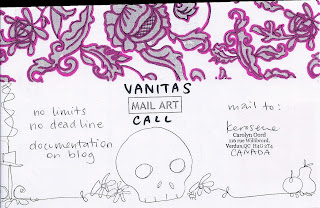 VANITAS
MAIL ART
CALL
no limits
no deadline
documentation
on blog
mail to:
Kerosene
Carolyn Oord
Willibrord,
Verdun, QC H4G 2T4
CANADA